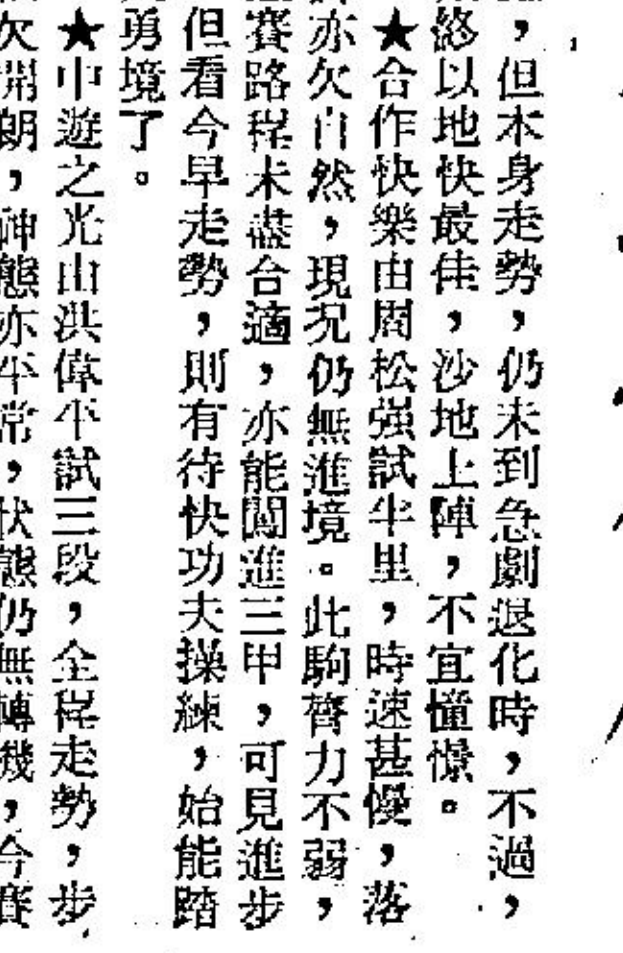 ，但本身走勢，仍未到急劇退化時，不過，
終以地快最佳，沙地上陣，不宜憧憬。
★合作快樂由周松强試半里，時速甚慢，落
亦欠自然，現况仍無進境。此駒膂力不弱，
賽路程未盡合適，亦能闖進三甲，可見進步
但看今早走勢，則有待快功夫操練，始能踏
勇境了。
★中遊之光由洪偉平試三段，全程走勢，步
欠開朗，神態亦平常，狀態仍無轉機，今賽